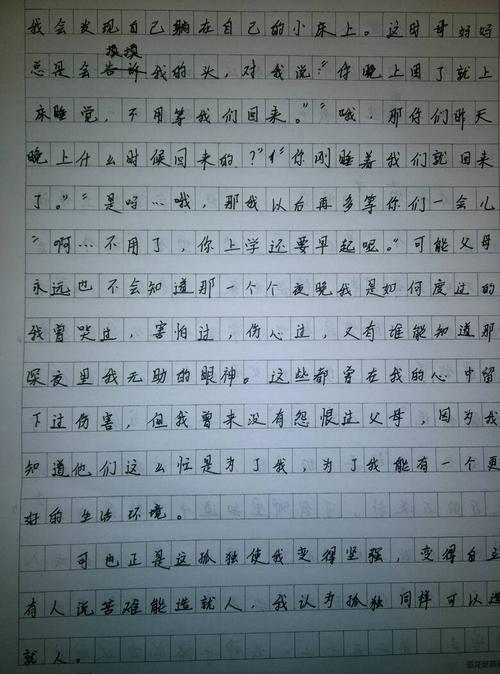 我会发现自己躺在自己的小床上。这时哥妈妈
摸摸
总是会告诉我的头，对我说："你晚上困了就上
床睡觉，不用等我们回来。""哦，那你们昨天
晚上什么时候回来的？""你刚睡着我们就回来
了。""是吗…哦，那我以后再多等你们一会儿
"啊…不用了，你上学还要早起呢。"可能父母
永远也不会知道那一个个夜晚我是如何度过的
我曾哭过，害怕过，伤心过，又有谁能知道那
深夜里我无助的眼神。这些都曾在我的心中留
下过伤害，但我曾来没有怨恨过父母，因为我
知道他们这么忙是为了我，为了我能有一个更
好的生活环境。
可也正是这孤独使我变得坚强，变得自立
有人说苦难能造就人，我认为孤独同样可以造
就人。